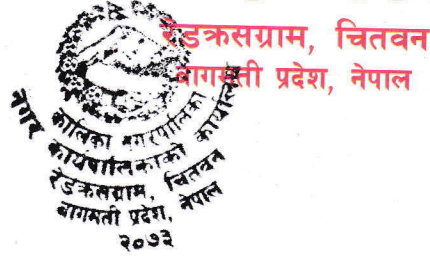 रेडक्रसग्राम, चितवन
बागमती प्रदेश, नेपाल
कालिका नगरपालिका
नगर कार्यपालिकाको कार्यालय
रेडक्रसग्राम, चितवन
बागमती प्रदेश, नेपाल
२०७३